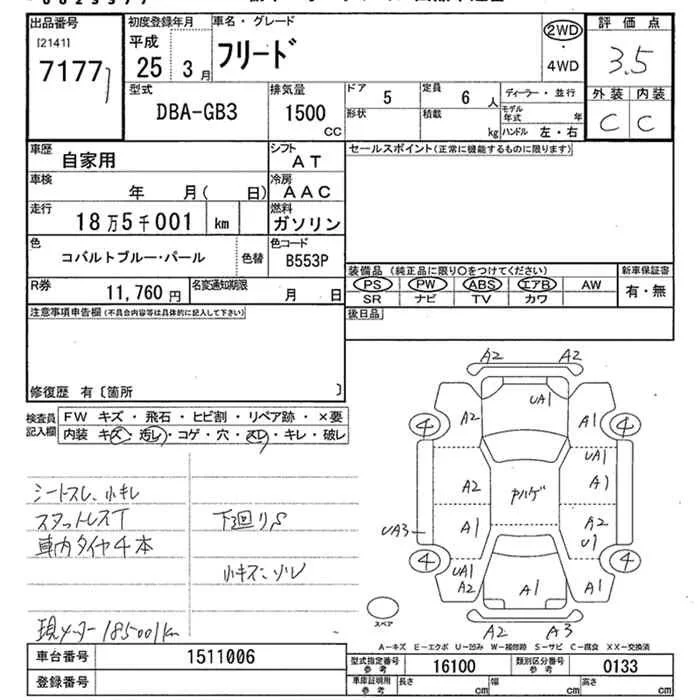 出品番号
[2141]
7177
初度登録年月
平成
25 3月
車名・グレード
フリード
2WD
・
4WD
評価点
3.5
外装 内装
C C
型式
DBA-GB3
排気量
1500
CC
ドア
5
形状
定員
6 人
積載
kg
ディーラー・並行
モデル年式 年
ハンドル 左・右
車歴
自家用
シフト
AT
車検
年 月( 日)
冷房
AAC
走行
18万5千001 km
燃料
ガソリン
色
コバルトブルー・パール
色替
色コード
B553P
R券
11,760円
名変通知期限
月 日
セールスポイント(正常に機能するものに限ります)
装備品 (純正品に限り○をつけてください)
PS PW ABS エアB AW
SR ナビ TV カワ
新車保証書
有・無
後日品
注意事項申告欄(不具合内容等は具体的に記入して下さい)
修復歴 有〔箇所 〕
検査員記入欄
FW キズ・飛石・ヒビ割・リペア跡・×要
内装 キズ・汚レ・コゲ・穴・スレ・キレ・破レ
シートスレ、小キレ
スタットレスT
車内タイヤ4本
下廻りS
小キズ、ソレ
現メーター185001km
A2 A2
UA1
A2 A1
4 4
UA1
A2 A1
Aハゲ
A1 A2
U1
UA3
4 4
UA1
A2 A1 A1
A2 A3
スペア
A-キズ E-エクボ U-凹み W-補修跡 S-サビ C-腐食 XX-交換済
車台番号
1511006
登録番号
型式指定番号
参考
16100
類別区分番号
参考
0133
車庫証明用
参考
長さ cm
幅 cm
高さ cm